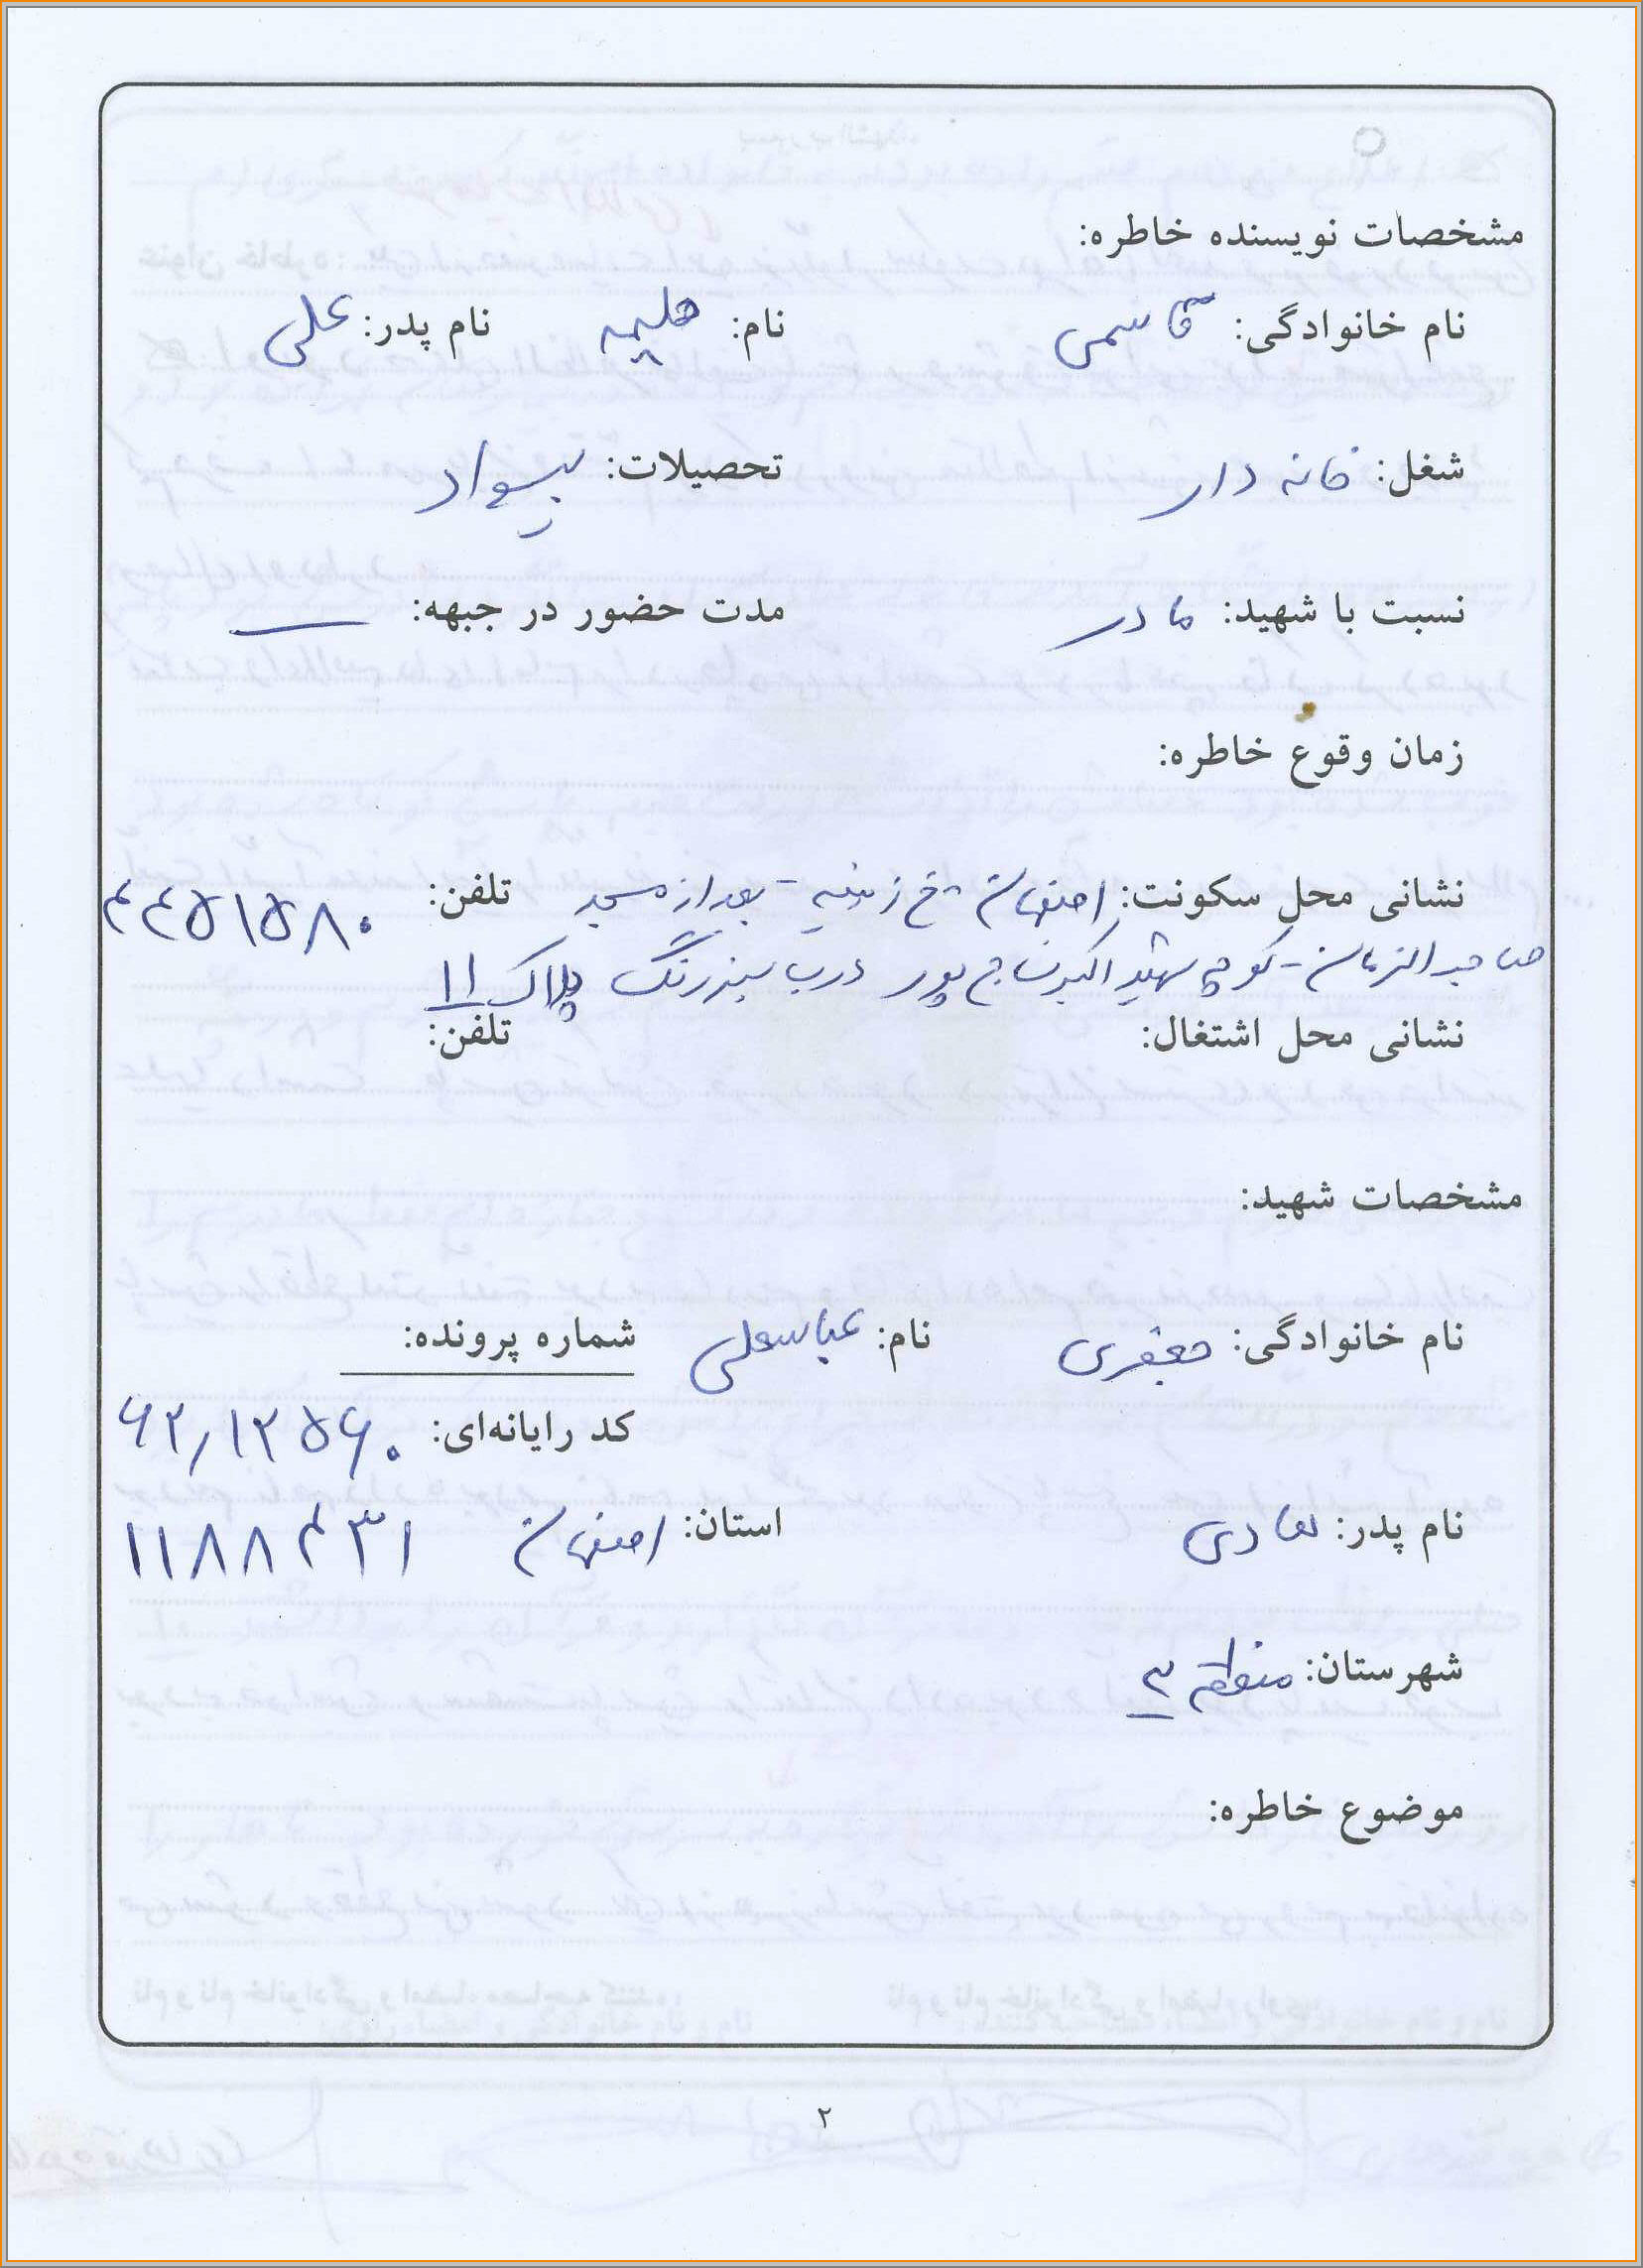 مشخصات نویسنده خاطره:
نام خانوادگی: قاسمی نام: حلیمه نام پدر: علی
شغل: خانه دار تحصیلات: بیسواد
نسبت با شهید: مادر مدت حضور در جبهه: —
زمان وقوع خاطره:
نشانی محل سکونت: اصفهان - خ زینبیه - بعد از مسجد تلفن: ۴۴۵۱۵۸۰
صاحب الزمان - کوچه شهید اکبر درب سبز رنگ پلاک ۱۱
نشانی محل اشتغال: تلفن:
مشخصات شهید:
نام خانوادگی: جعفری نام: عباسعلی شماره پرونده:
کد رایانه‌ای: ۶۲/۱۳۵۶۰
نام پدر: هادی استان: اصفهان ۱۱۸۸۴۳۱
شهرستان: منطقه ۳
موضوع خاطره:
۲